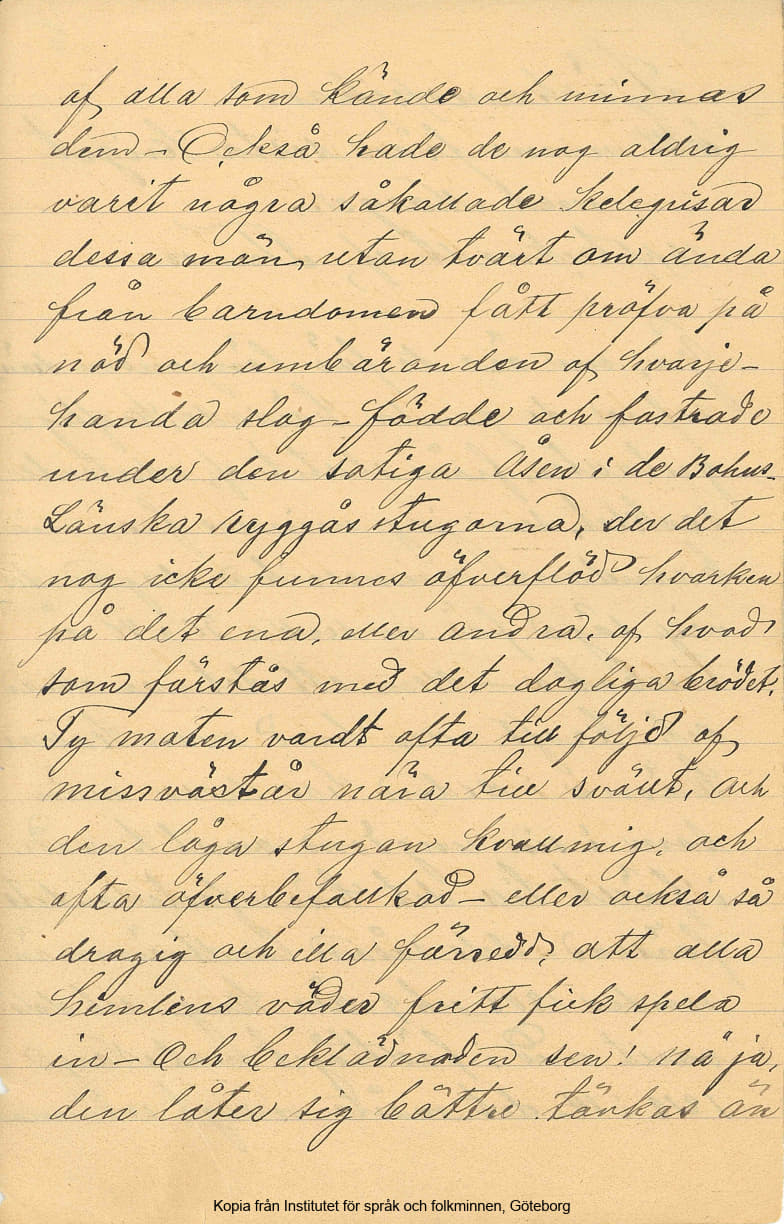 af alla som kände och minnas
dem – Också hade de nog aldrig
varit några såkallade kelegrisar
dessa män, utan tvärt om ända
från barndomen fått pröfva på
nöd och umbäranden af hvarje-
handa slag – födde och fostrade
under den sotiga Åsen i de Bohus-
Länska ryggåsstugorna, der det
nog icke funnes öfverflöd hvarken
på det ena, eller andra, af hvad
som förstås med det dagliga brödet.
Ty maten vardt ofta till följd af
missväxtår nära till svält, och
den låga stugan kvallmig, och
ofta öfverbefallkad – eller också så
dragig och illa försedd, att alla
himlens väder fritt fick spela
in – Och beklädnaden sen! nå ja,
den låter sig bättre tänkas än
Kopia från Institutet för språk och folkminnen, Göteborg